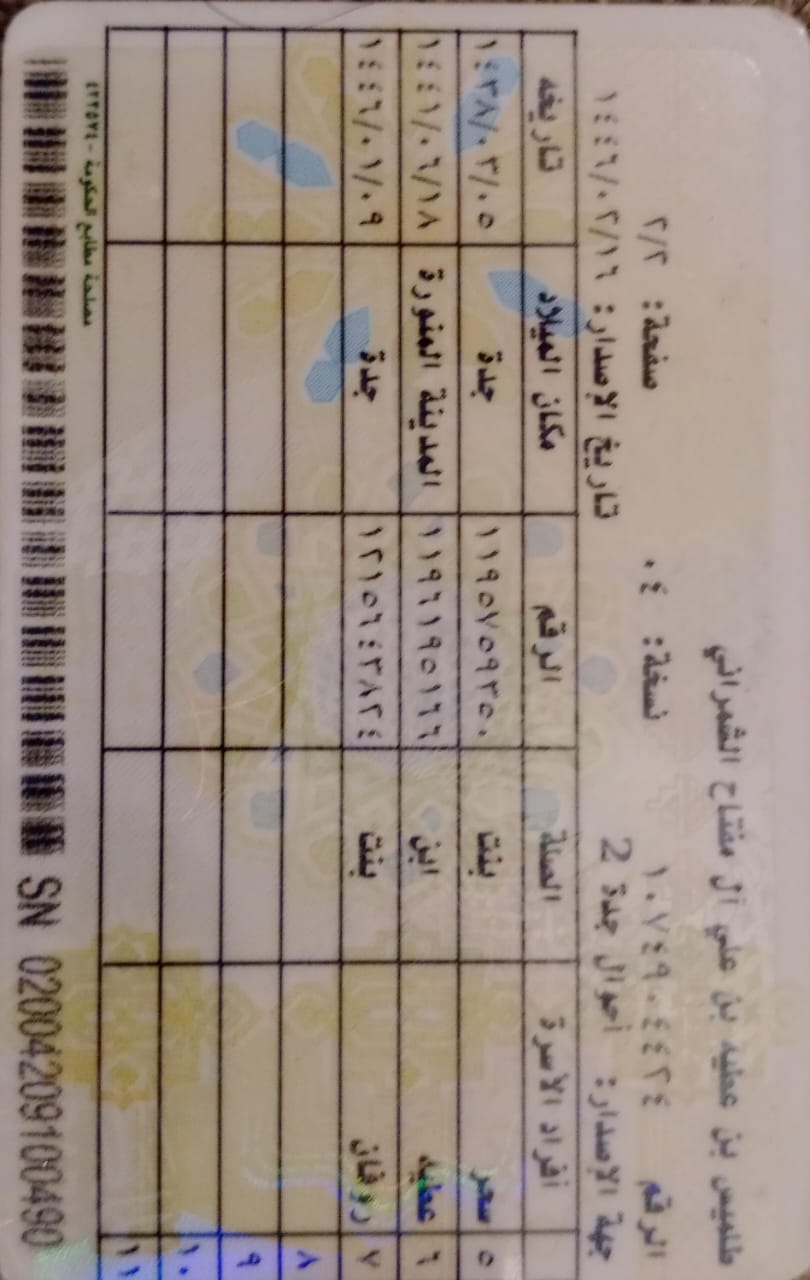 طلميس بن عطيه بن علي آل مفتاح الشمراني
الرقم ١٠٧٤٩٠٤٤٢٤ نسخة: ٠٤ صفحة: ٢/٢
جهة الإصدار: أحوال جدة 2 تاريخ الإصدار: ١٤٤٦/٠٢/١٦
أفراد الأسرة الصلة الرقم مكان الميلاد تاريخه
٥ سحر بنت ١١٩٥٧٥٩٣٥٠ جدة ١٤٣٨/٠٣/٠٥
٦ عطيه ابن ١١٩٦١٩٥١٦٦ المدينة المنورة ١٤٤١/٠٦/١٨
٧ روفان بنت ١٢١٥٦٤٣٨٢٤ جدة ١٤٤٦/٠١/٠٩
٨
٩
١٠
١١
مصلحة مطابع الحكومة -
SN 02004209100490